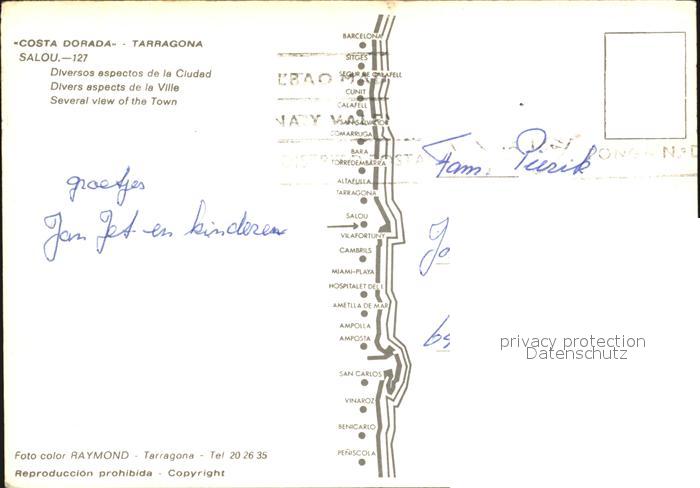 «COSTA DORADA» - TARRAGONA
SALOU.—127
Diversos aspectos de la Ciudad
Divers aspects de la Ville
Several view of the Town
groetjes
Jan Jet en kinderen
Foto color RAYMOND - Tarragona - Tel 20 26 35
Reproducción prohibida - Copyright
BARCELONA
SITGES
SEGUR DE CALAFELL
CUNIT
CALAFELL
SAN SALVADOR
COMARRUGA
BARA
TORREDEMBARRA
ALTAFULLA
TARRAGONA
SALOU
VILAFORTUNY
CAMBRILS
MIAMI-PLAYA
HOSPITALET DEL I.
AMETLLA DE MAR
AMPOLLA
AMPOSTA
SAN CARLOS
VINAROZ
BENICARLO
PEÑISCOLA
Fam. Pierik
Jo
privacy protection
Datenschutz